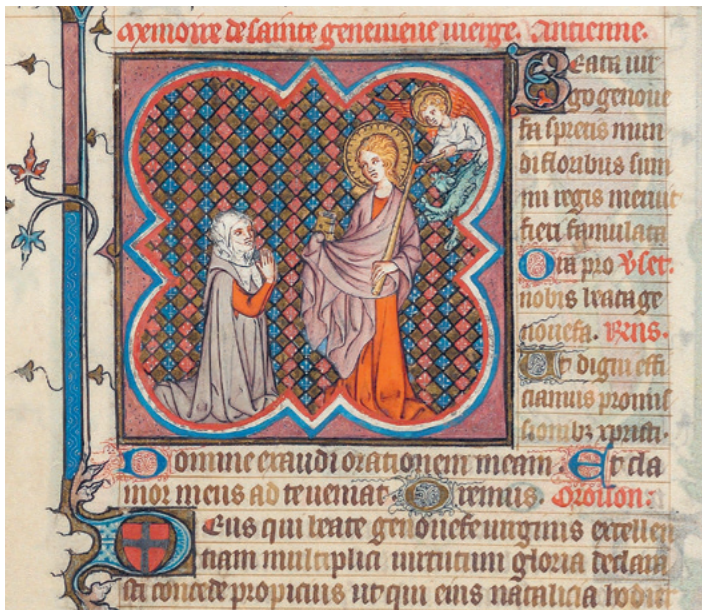 Memoire de sainte genevieve vierge. Antienne.
Beata vir
go genove
fa spretis mun
di floribus sum
mi regis meruit
fieri famulata
Ora pro Vset.
nobis beata ge
novefa. Rens.
Ut digni effi
ciamur promis
sionibz xpristi.
Domine exaudi orationem meam. Et cla
mor meus ad te veniat. Oremus. Oroison:
Deus qui beate genovefe virginis excellen
tiam multiplici virtutum gloria declara
sti concede propicius ut qui eius natalicia hodier